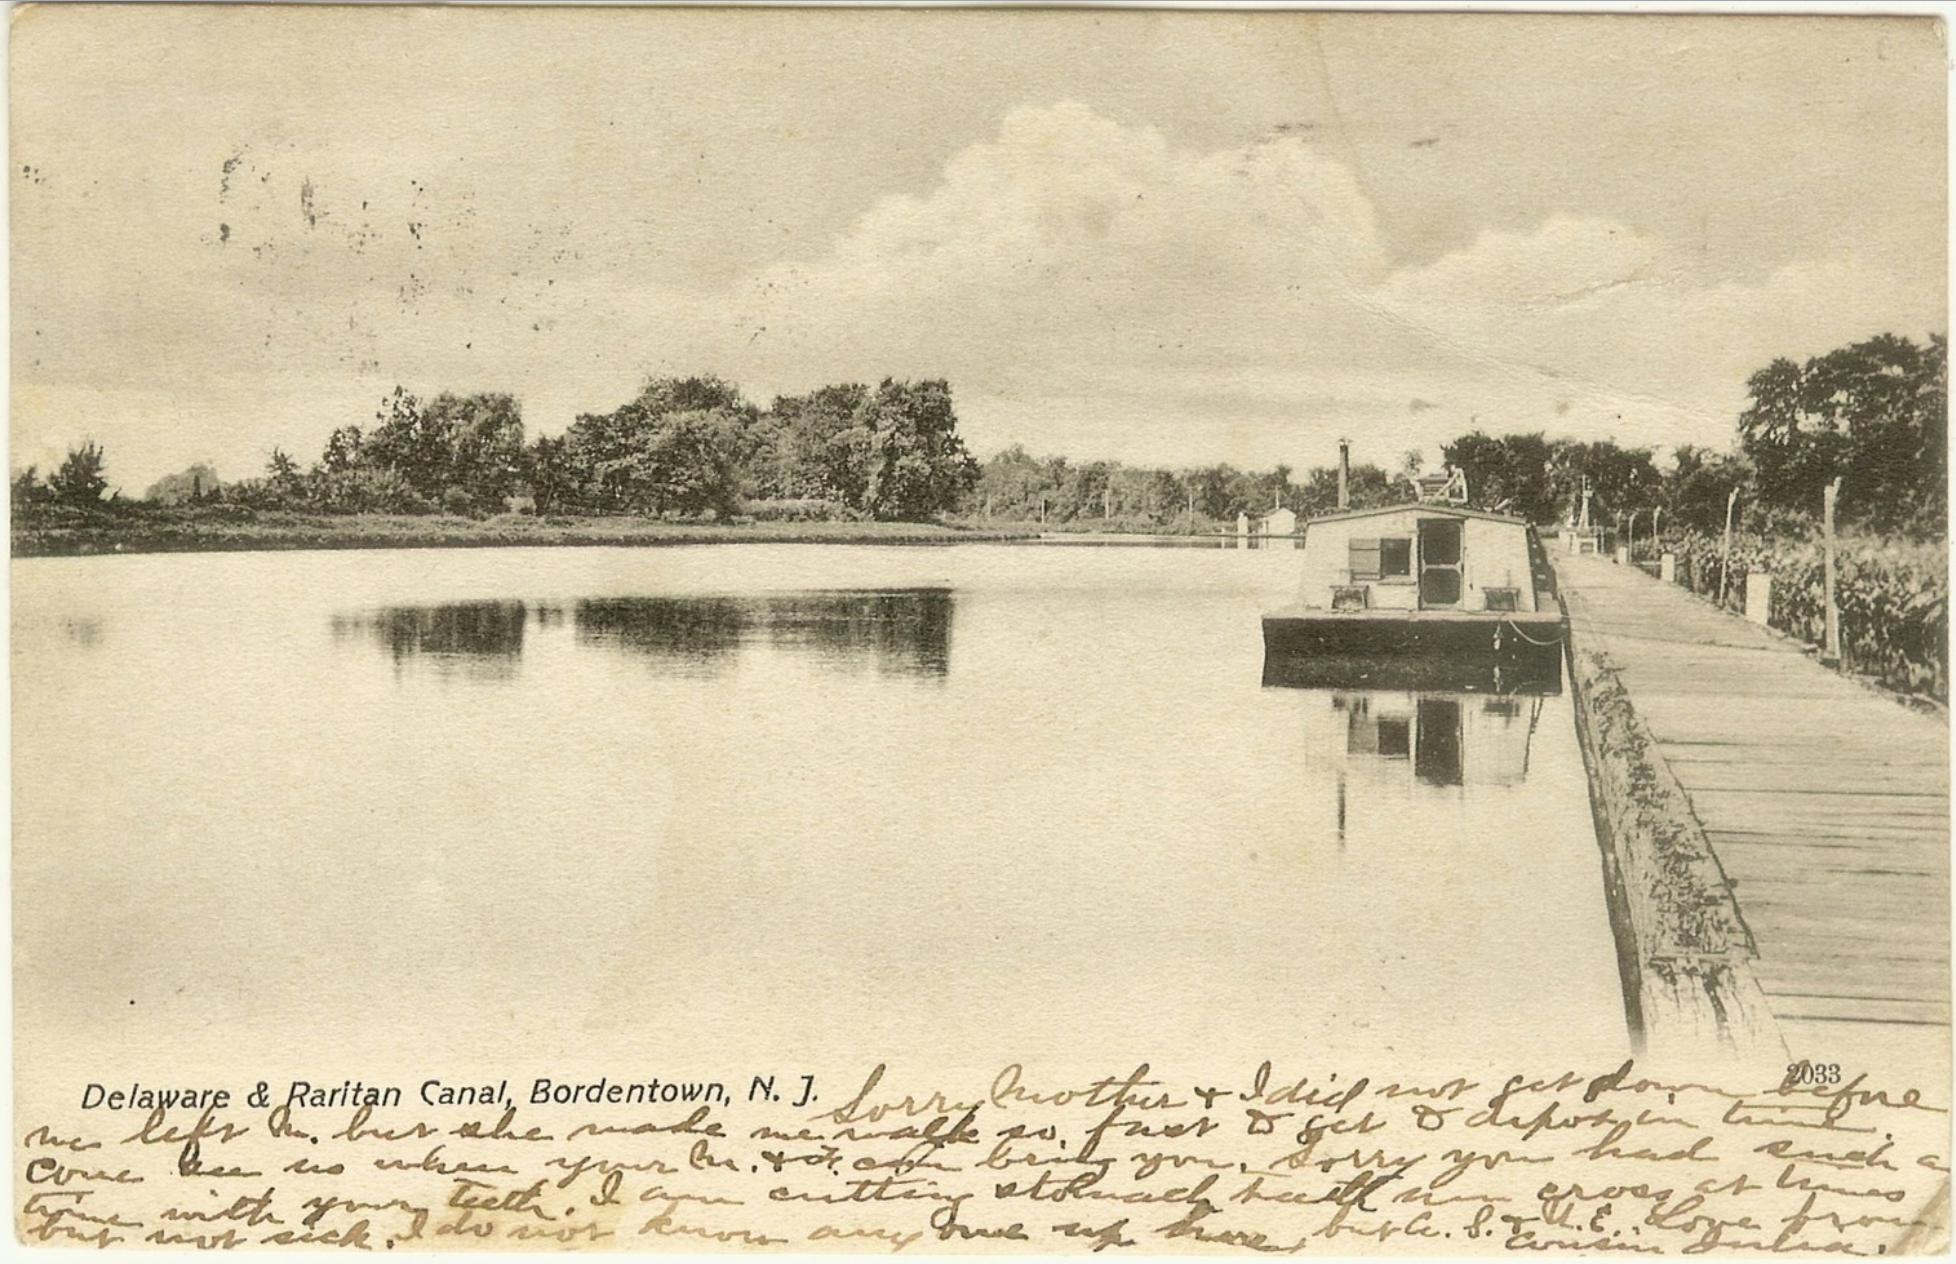 Delaware & Raritan Canal, Bordentown, N. J.
2033
Sorry Mother & I did not get down before
we left M. but she made me walk so fast to get to depot in time.
Come see us when your M. & F. can bring you. Sorry you had such a
time with your teeth. I am cutting stomach teeth am cross at times
but not sick. I do not know any one up here, but A. S. & U. E. Love from
cousin